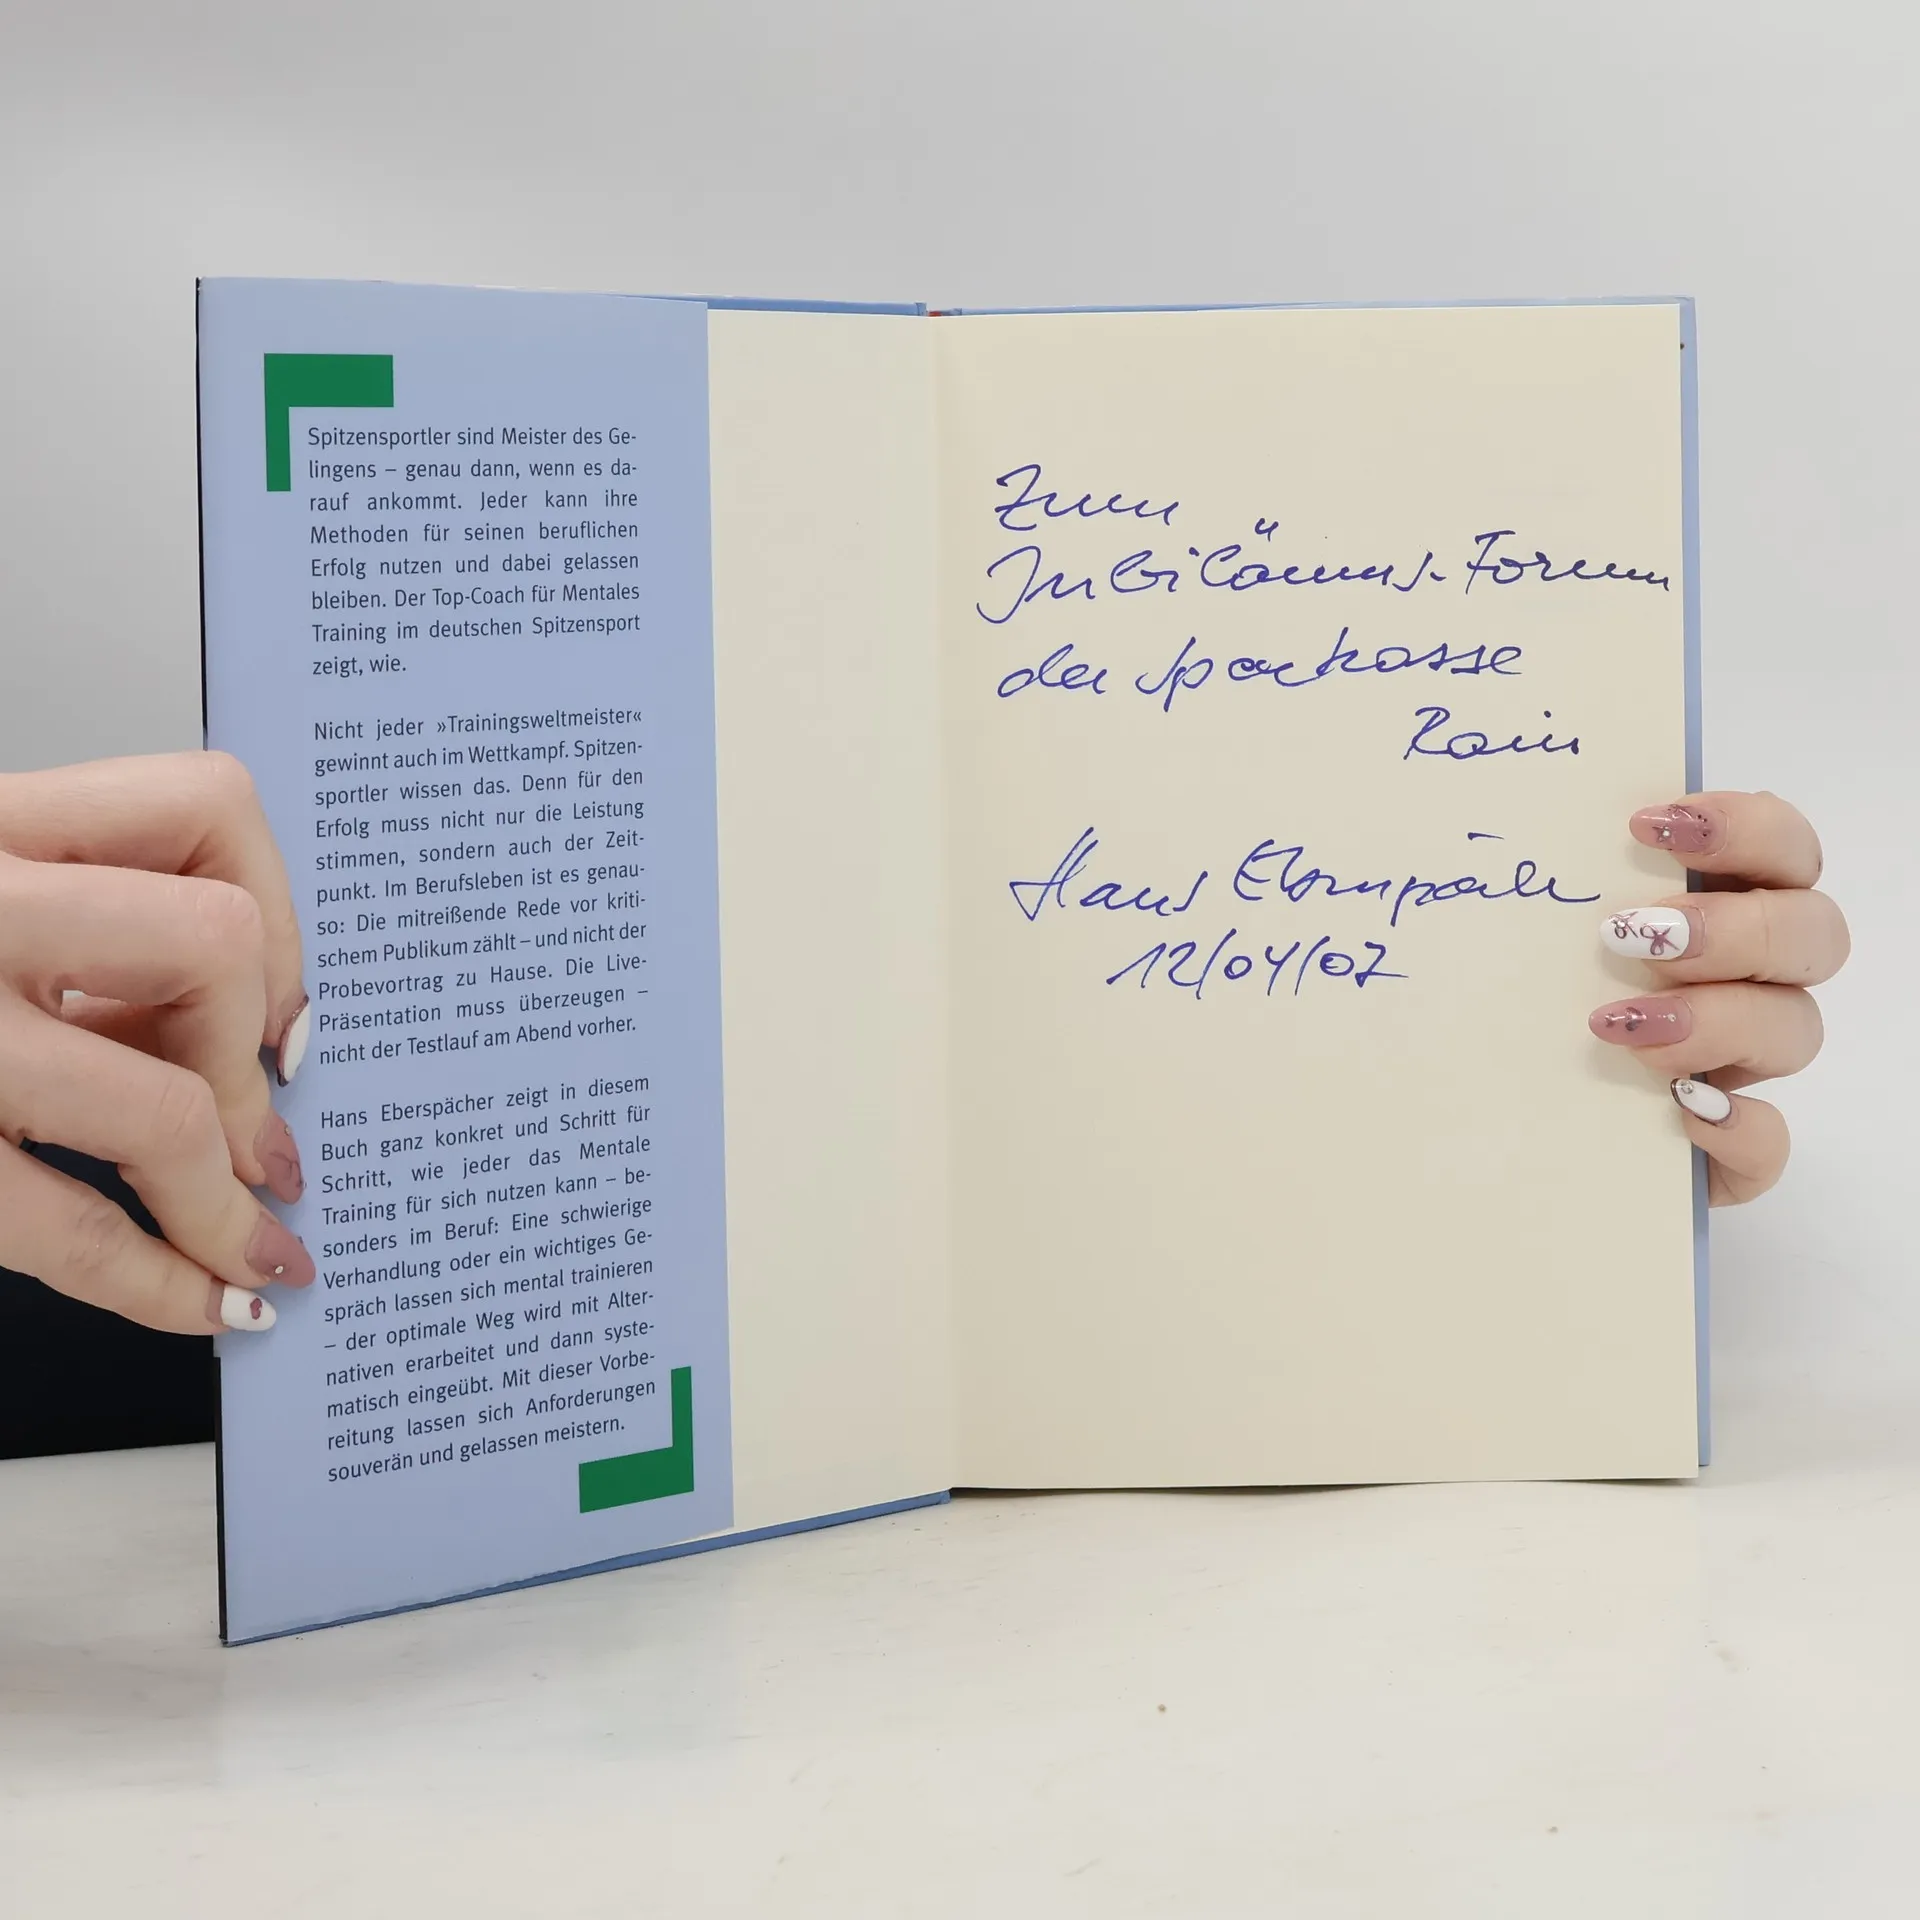 Spitzensportler sind Meister des Ge-
lingens – genau dann, wenn es da-
rauf ankommt. Jeder kann ihre
Methoden für seinen beruflichen
Erfolg nutzen und dabei gelassen
bleiben. Der Top-Coach für Mentales
Training im deutschen Spitzensport
zeigt, wie.
Nicht jeder »Trainingsweltmeister«
gewinnt auch im Wettkampf. Spitzen-
sportler wissen das. Denn für den
Erfolg muss nicht nur die Leistung
stimmen, sondern auch der Zeit-
punkt. Im Berufsleben ist es genau-
so: Die mitreißende Rede vor kriti-
schem Publikum zählt – und nicht der
Probevortrag zu Hause. Die Live-
Präsentation muss überzeugen –
nicht der Testlauf am Abend vorher.
Hans Eberspächer zeigt in diesem
Buch ganz konkret und Schritt für
Schritt, wie jeder das Mentale
Training für sich nutzen kann – be-
sonders im Beruf: Eine schwierige
Verhandlung oder ein wichtiges Ge-
spräch lassen sich mental trainieren
– der optimale Weg wird mit Alter-
nativen erarbeitet und dann syste-
matisch eingeübt. Mit dieser Vorbe-
reitung lassen sich Anforderungen
souverän und gelassen meistern.
Zum
Jubiläums-Forum
der Sparkasse
Rain
Hans Eberspächer
12/04/07